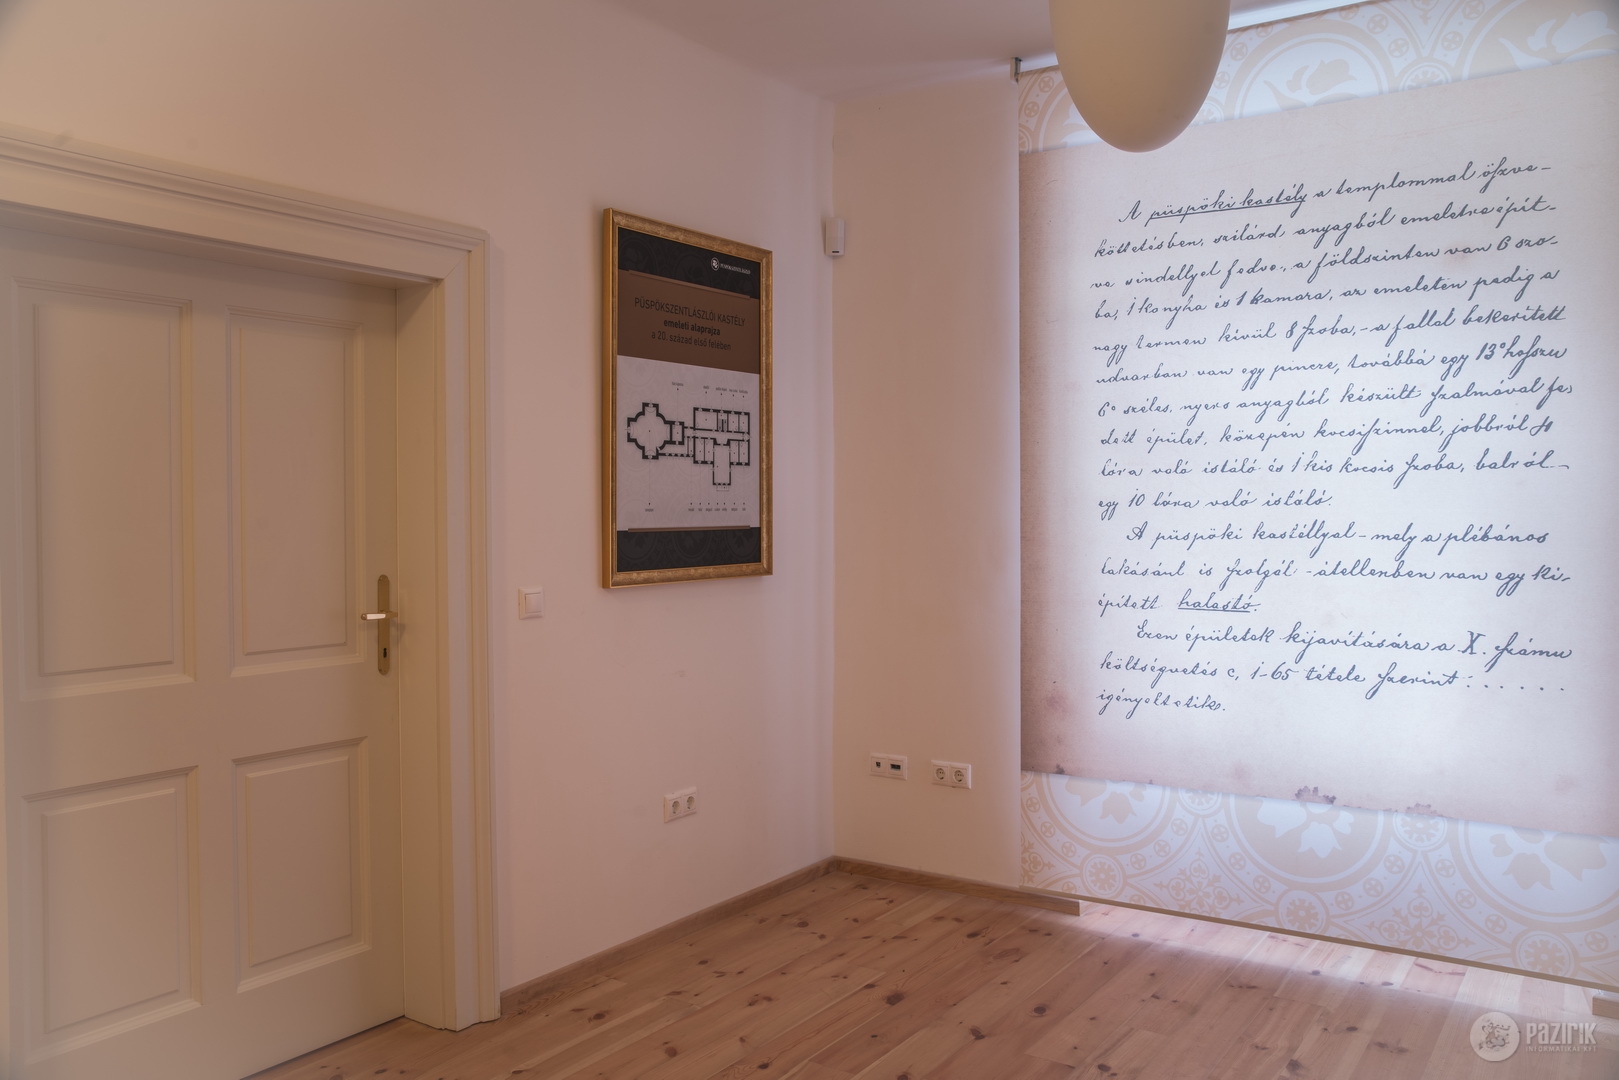 PÜSPÖKSZENTLÁSZLÓI KASTÉLY
emeleti alaprajza
a 20. század első felében
A püspöki kastély a templommal öszve-
köttetésben, szilárd anyagból emeletre épít-
ve sindellyel fedve, a földszinten van 6 szo-
ba, 1 konyha és 1 kamara, az emeleten pedig a
nagy termen kívül 8 szoba, - a fallal bekerített
udvarban van egy pincze, továbbá egy 13° hosszu
6° széles, nyers anyagból készült szalmával fe,
dett épület, közepén kocsiszinnel, jobbról 4
lóra való istáló és 1 kis kocsis szoba, balról -
egy 10 lóra való istáló.
A püspöki kastéllyal - mely a plébános
lakásául is szolgál - átellenben van egy ki-
épített halastó.
Ezen épületek kijavítására a X. számu
költségvetés c, 1-65 tétele szerint : . . . . .
igényeltetik.
PAZIRIK
INFORMATIKAI KFT.